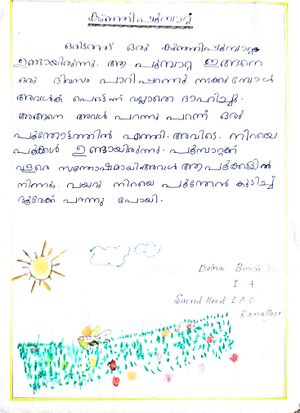 കുഞ്ഞിപൂമ്പാറ്റ
ഒരിടത്ത് ഒരു കുഞ്ഞിപൂമ്പാറ്റ
ഉണ്ടായിരുന്നു. ആ പൂമ്പാറ്റ ഇങ്ങനെ
ഒരു ദിവസം പാറിപറന്നു നടക്കുമ്പോൾ
അവൾക്ക് പെട്ടന്ന് വല്ലാതെ ദാഹിച്ചു.
അങ്ങനെ അവൾ പറന്നു പറന്ന് ഒരു
പൂന്തോട്ടത്തിൽ എത്തി. അവിടെ നിറയെ
പൂക്കൾ ഉണ്ടായിരുന്നു. പൂമ്പാറ്റക്ക്
വളരെ സന്തോഷമായി. അവൾ ആ പൂക്കളിൽ
നിന്നും വയറു നിറയെ പൂന്തേൻ കുടിച്ച്
ദൂരേക്ക് പറന്നു പോയി.
Delna Binish
I A
Sacred Heart L.P.S